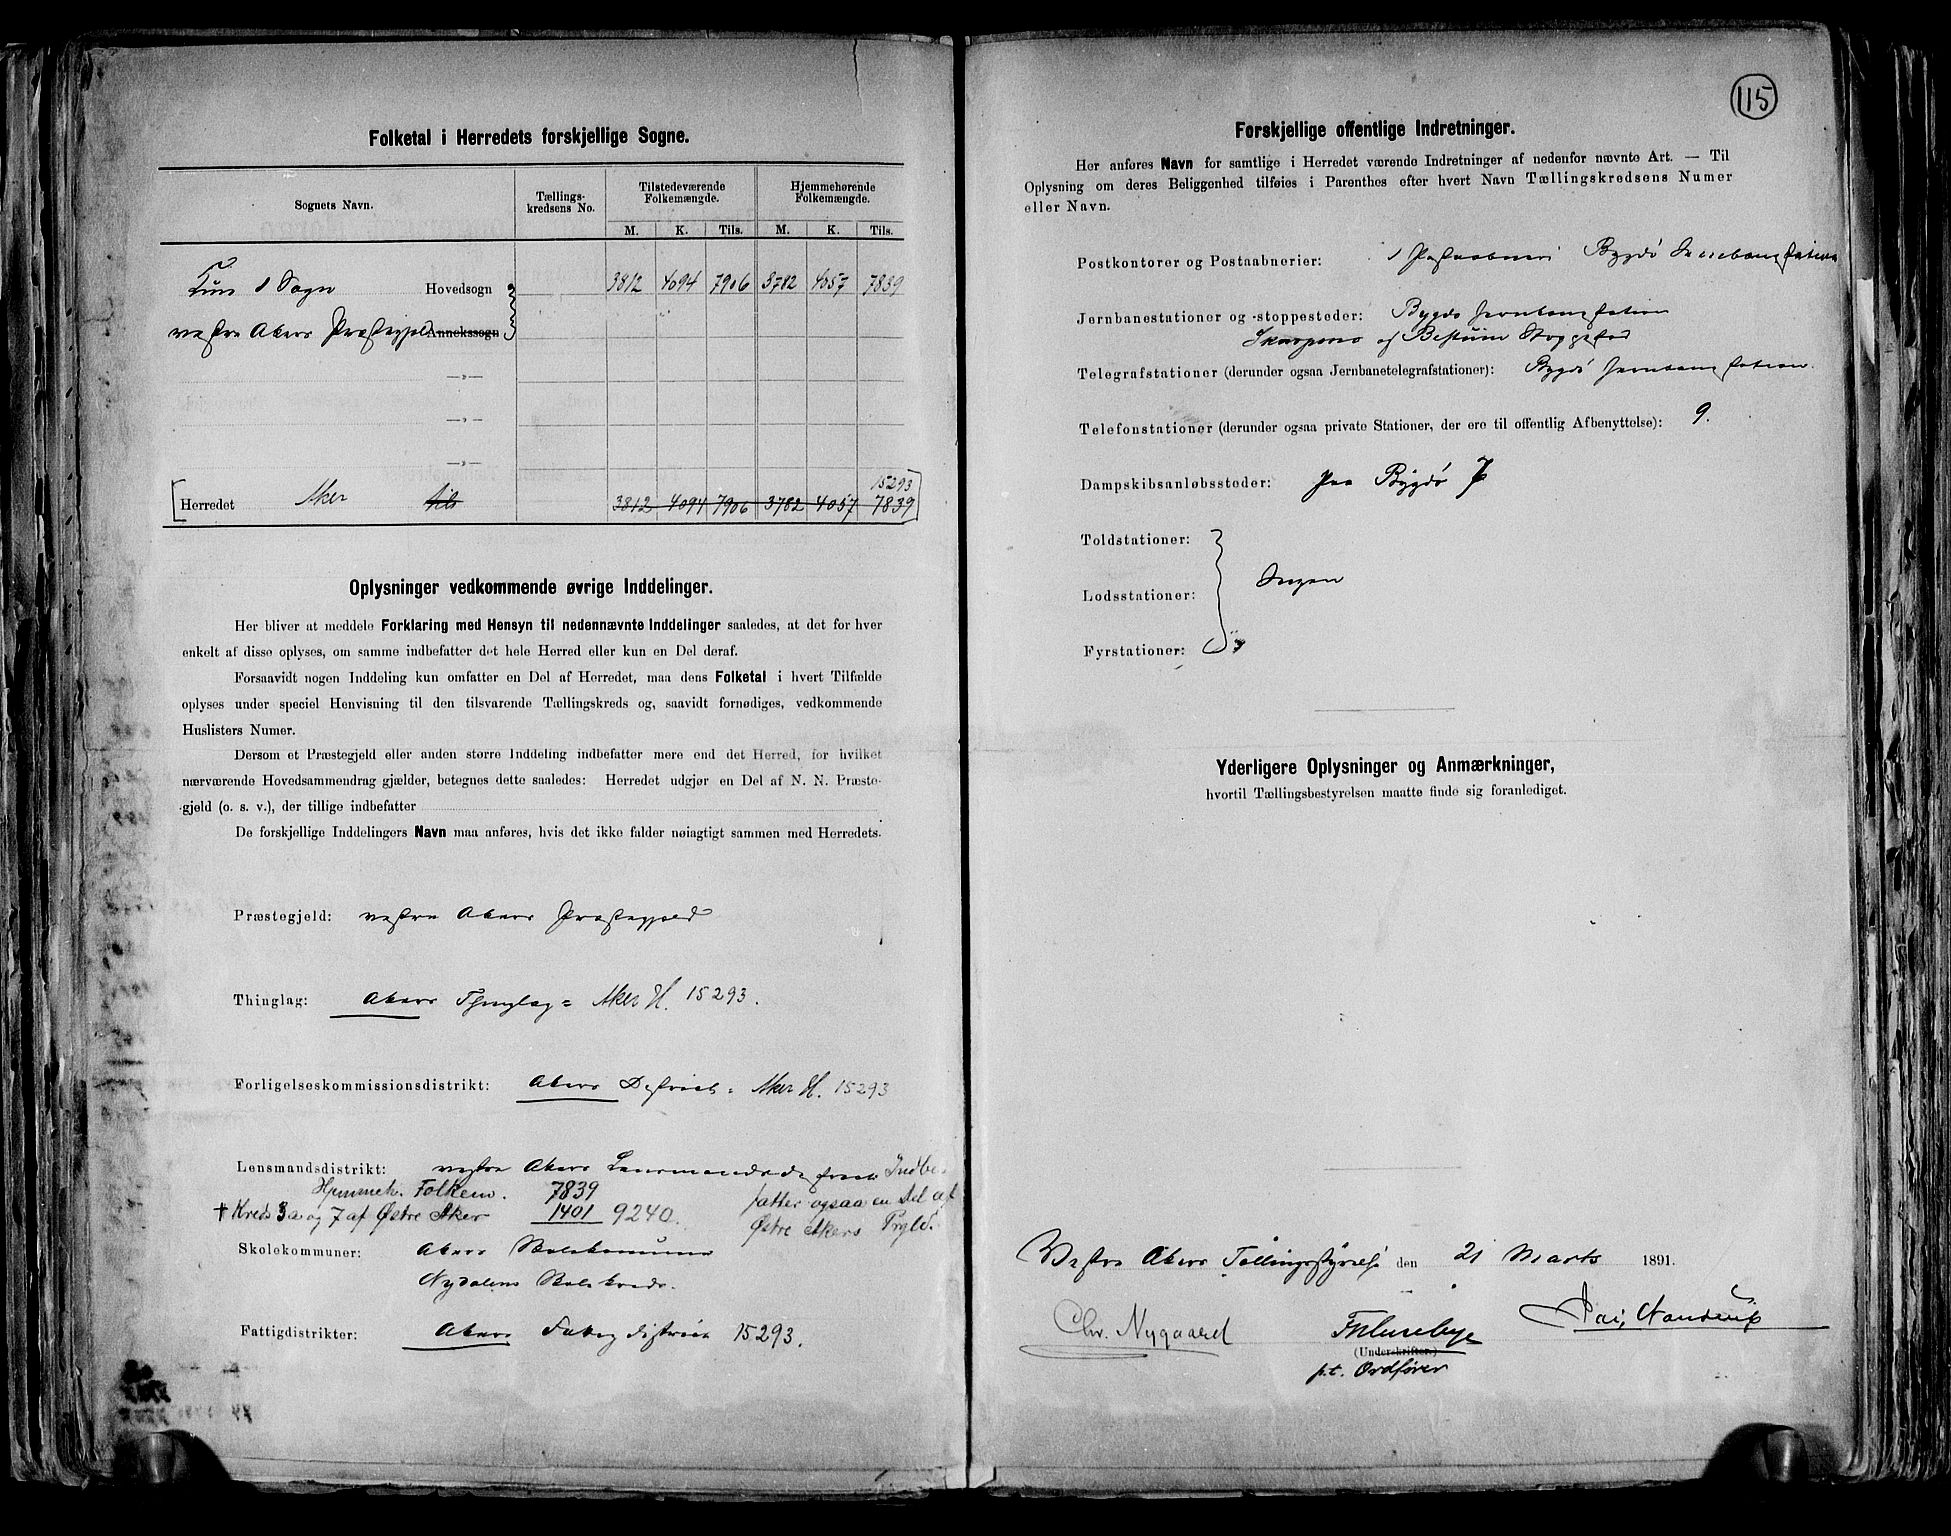 Folketal i Herredets forskjellige Sogne.
Sognets Navn.
Tællings-
kredsens No.
Tilstedeværende
Folkemængde.
Hjemmehørende
Folkemængde.
M. K. Tils. M. K. Tils.
Kun 1 Sogn Hovedsogn 3812 4094 7906 3782 4057 7839
vestre Akers Præstegjeld Annekssogn
—»—
—»—
—»—
15293
Herredet Aker tils 3812 4094 7906 3782 4057 7839
Oplysninger vedkommende øvrige Inddelinger.
Her bliver at meddele Forklaring med Hensyn til nedennævnte Inddelinger saaledes, at det for hver
enkelt af disse oplyses, om samme indbefatter det hele Herred eller kun en Del deraf.
Forsaavidt nogen Inddeling kun omfatter en Del af Herredet, maa dens Folketal i hvert Tilfælde
oplyses under speciel Henvisning til den tilsvarende Tællingskreds og, saavidt fornødiges, vedkommende
Huslisters Numer.
Dersom et Præstegjeld eller anden større Inddeling indbefatter mere end det Herred, for hvilket
nærværende Hovedsammendrag gjælder, betegnes dette saaledes: Herredet udgjør en Del af N. N. Præste-
gjeld (o. s. v.), der tillige indbefatter
De forskjellige Inddelingers Navn maa anføres, hvis det ikke falder nøiagtigt sammen med Herredets.
Præstegjeld: vestre Akers Præstegjeld
Thinglag: Akers Thinglag = Aker H. 15293.
Forligelseskommissionsdistrikt: Akers Distrikt = Aker H. 15293
Lensmandsdistrikt: vestre Akers Lensmandsdistrikt Indbe
Hjemmeh. Folkem. 7839 fatter ogsaa en Del af
+ Kreds 3a og 7 af Østre Aker 1401 9240. Østre Akers Prgld.
Skolekommuner: Akers Skolekommune
Nydalens Skolekreds.
Fattigdistrikter: Akers Fattigdistrikt 15293.
115
Forskjellige offentlige Indretninger.
Her anføres Navn for samtlige i Herredet værende Indretninger af nedenfor nævnte Art. — Til
Oplysning om deres Beliggenhed tilføies i Parenthes efter hvert Navn Tællingskredsens Numer
eller Navn.
Postkontorer og Postaabnerier: 1 Postaabneri Bygdø Jernbanestation
Jernbanestationer og -stoppesteder: Bygdø Jernbanestation
Skarpsno og Bestum Stoppested
Telegrafstationer (derunder ogsaa Jernbanetelegrafstationer): Bygdø Jernbanestation.
Telefonstationer (derunder ogsaa private Stationer, der ere til offentlig Afbenyttelse): 9.
Dampskibsanløbssteder: paa Bygdø 7
Toldstationer:
Lodsstationer: Ingen
Fyrstationer:
Yderligere Oplysninger og Anmærkninger,
hvortil Tællingsbestyrelsen maatte finde sig foranlediget.
Vestre Akers Tællingsstyrelse den 21 Marts 1891.
Chr. Nygaard
(Underskrifter.)
p.t. Ordfører